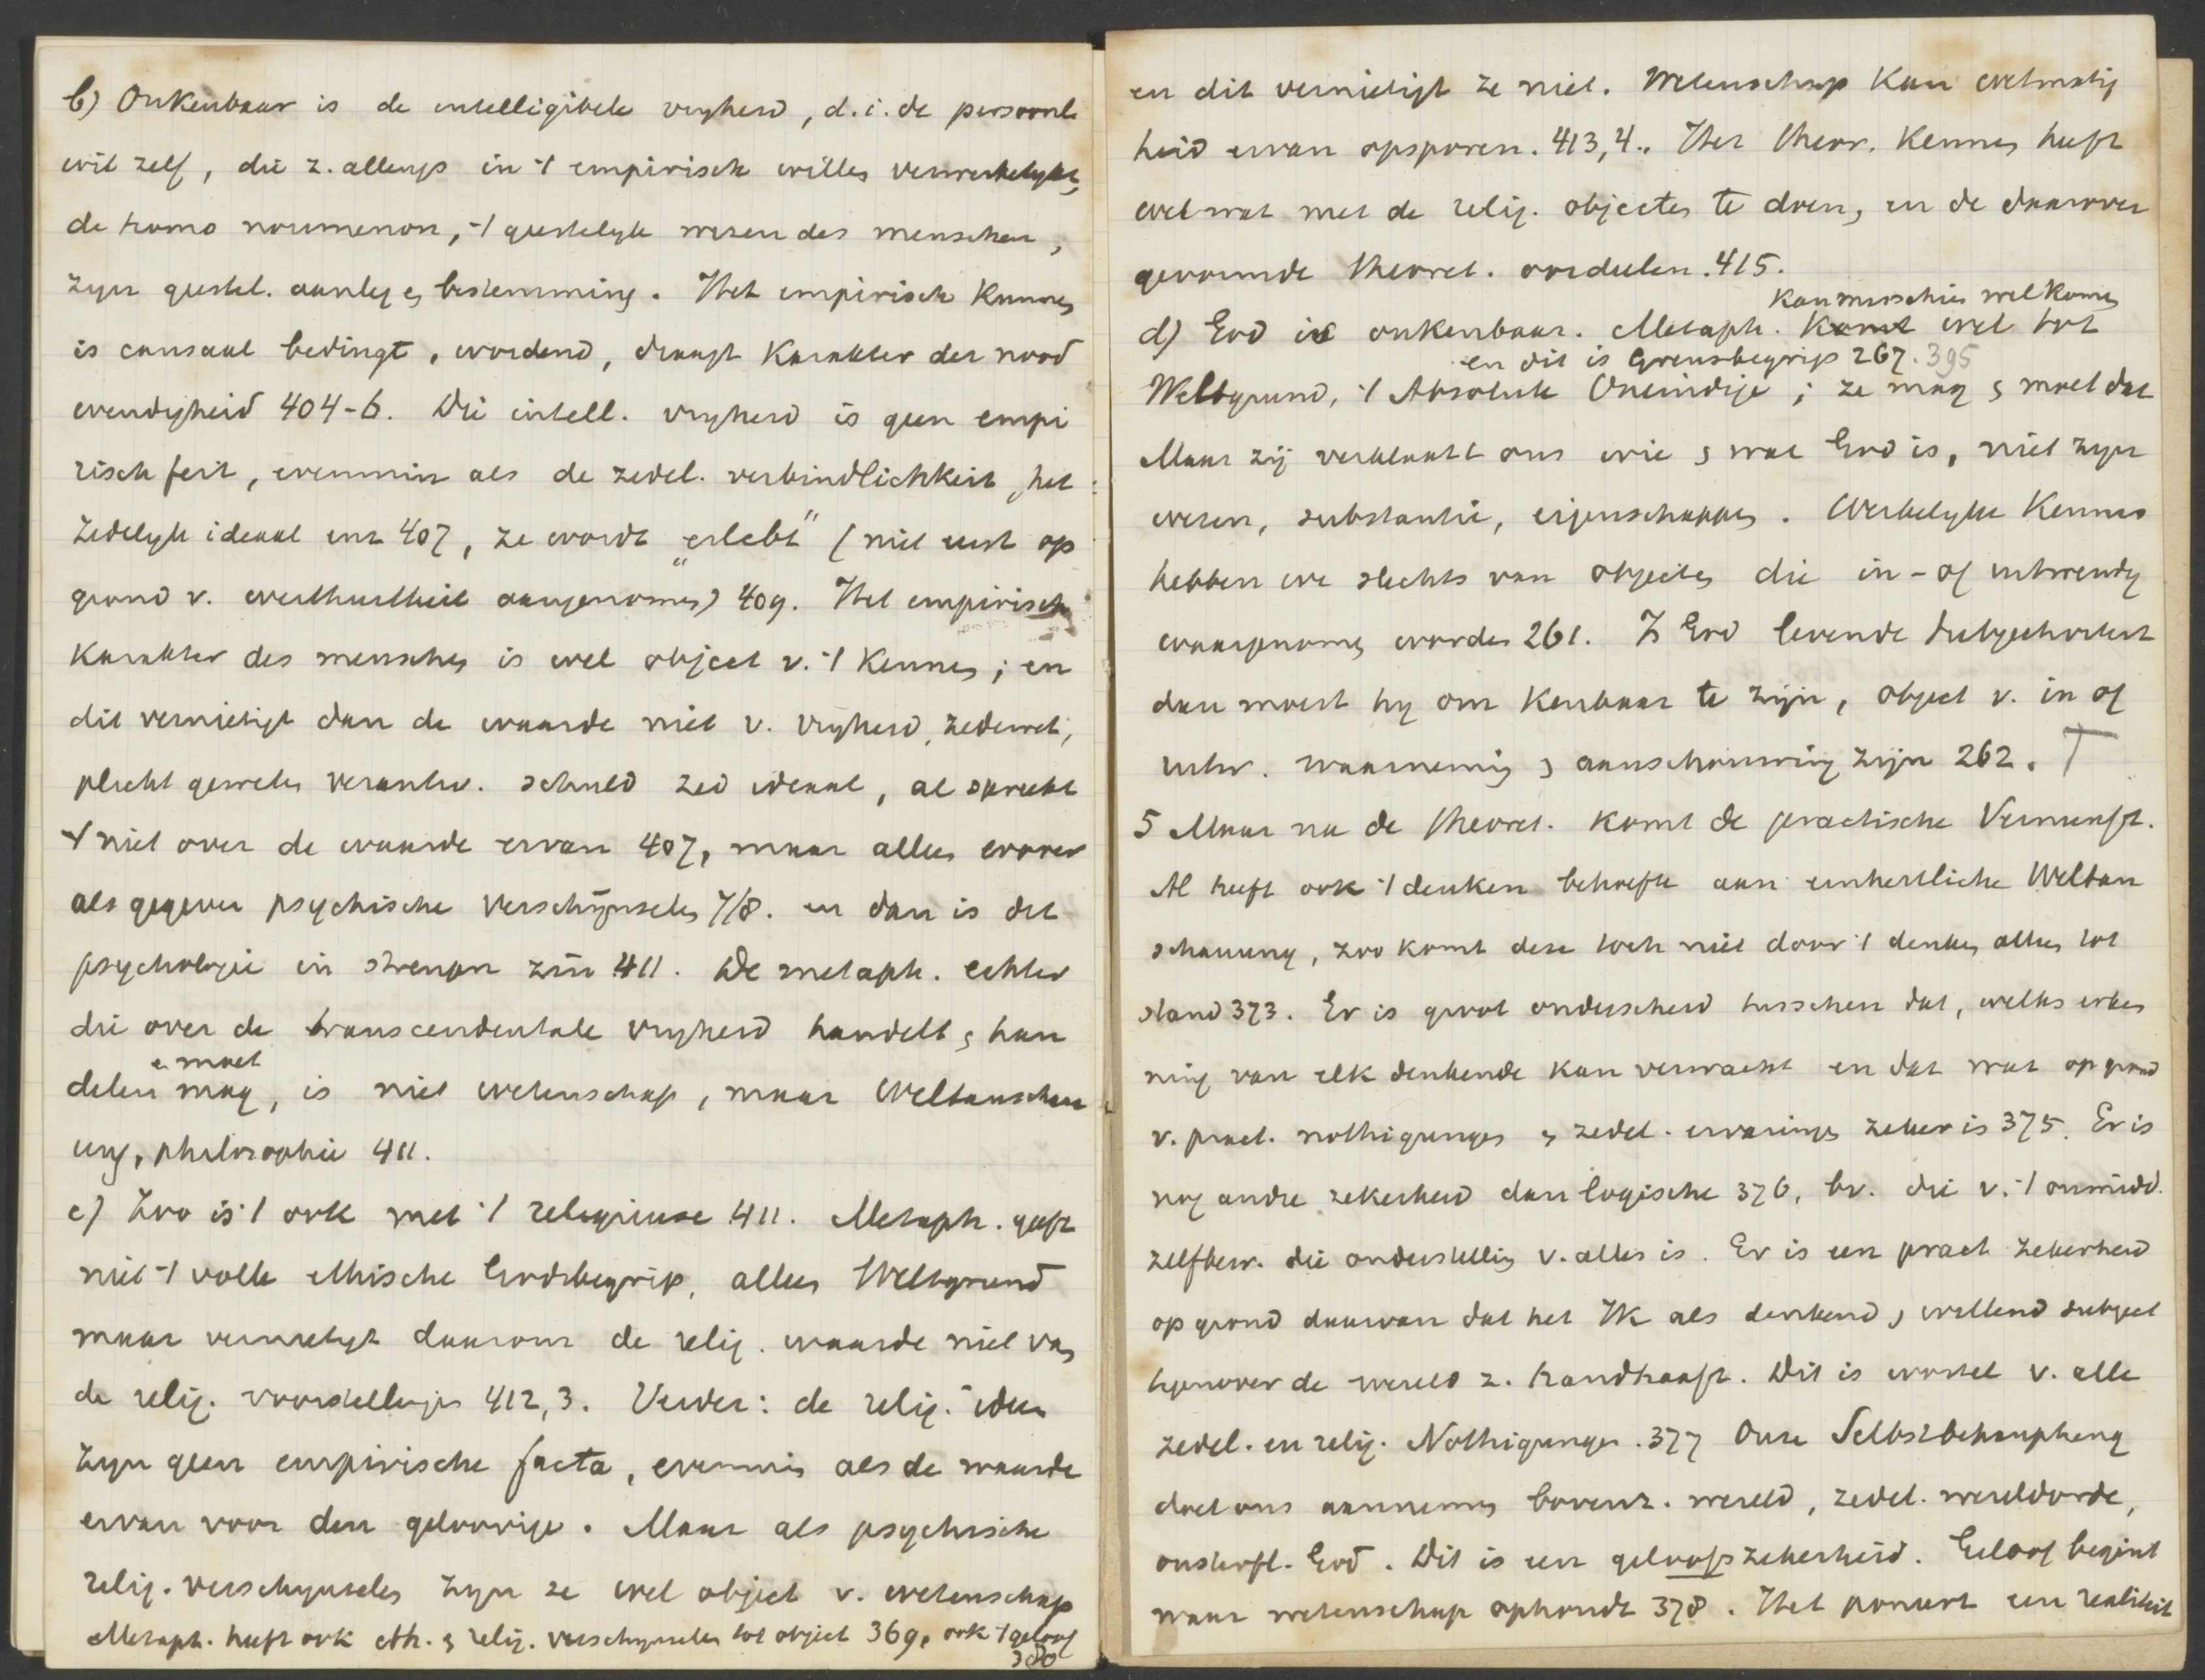 b) Onkenbaar is de intelligibele vryheid, d.i. de persoonle
wil zelf, die z. allengs in 't empirisch willen verwerkelykt,
de homo noumenon, 't geestelyk wezen des menschen,
zyn geestel. aanleg en bestemming. Het empirisch kennen
is causaal bedingt, wordend, draagt karakter der nood
wendigheid 404-6. Die intell. vryheid is geen empi
risch feit, evenmin als de zedel. verbindlichkeit, het
zedelyk ideaal enz 407, ze wordt „erlebt" (niet eerst op
grond v. aangenomen) 409. Het empirisch
karakter des menschen is wel object v. 't kennen; en
dit vernietigt dan de waarde niet v. vryheid, zedewet,
plicht geweten verantw. schuld zed ideaal, al spreekt
't niet over de waarde ervan 407, maar alleen erover
als gegeven psychische verschijnselen 7/8. en dan is dit
psychologie in strengen zin 411. De metaph. echter
die over de transcendentale vryheid handelt en han
delen mag, is niet wetenschap, maar Weltanschau
en moet
ung, philosophie 411.
c) Zoo is 't ook met 't religieuse 411. Metaph. geeft
niet 't volle ethische Godsbegrip, alleen Weltgrund
maar vernietigt daarom de relig. waarde niet van
de relig. voorstellingen 412,3. Verder: de relig. ideen
zyn geen empirische facta, evenmin als de waarde
ervan voor den geloovige. Maar als psychische
relig. verschynselen zyn ze wel object v. wetenschap
Metaph. heeft ook eth. en relig. verschynselen tot object 369, ook 't geloof
380
en dit vernietigt ze niet. Wetenschap kan wetmatig
heid ervan opsporen. 413,4.. Het theor. kennen heeft
wel wat met de relig. objecten te doen, en de daarover
gevormde theoret. oordeelen. 415.
kan misschien wel komen
d) God is onkenbaar. Metaph. komt wel tot
en dit is Grensbegrip 267. 395
Weltgrund, 't Absolute Oneindige; ze mag en moet dat
Maar zij verklaart ons wie en wat God is, niet zyn
wezen, substantie, eigenschappen. Werkelyke kennis
hebben we slechts van objecten die in- of uitwendig
waargenomen worden 261. Is God levende
dan moest hy om kenbaar te zijn, object v. in of
uitw. waarneming en aanschouwing zijn 262. T
5 Maar na de theoret. komt de practische Vernunft.
Al heeft ook 't denken behoefte aan einheitliche Weltan
schauung, zoo komt deze toch niet door 't denken alleen tot
stand 373. Er is groot onderscheid tusschen dat, welks erken
ning van elk denkende kan verwacht en dat wat op grond
v. pract. nothigungen en zedel. ervaringen zeker is 375. Er is
nog andre zekerheid dan logische 376, bv. die v. 't onmidd.
zelfbew. die onderstelling v. alles is. Er is een pract zekerheid
op grond daarvan dat het Ik als denkend en willend subject
tegenover de wereld z. handhaaft. Dit is wortel v. alle
zedel. en relig. Nothigungen. 377 Onze Selbstbehauptung
doet ons aannemen bovenz. wereld, zedel. wereldorde,
onsterfl. God. Dit is een geloofszekerheid. Geloof begint
waar wetenschap ophoudt 378. Het poneert een realiteit